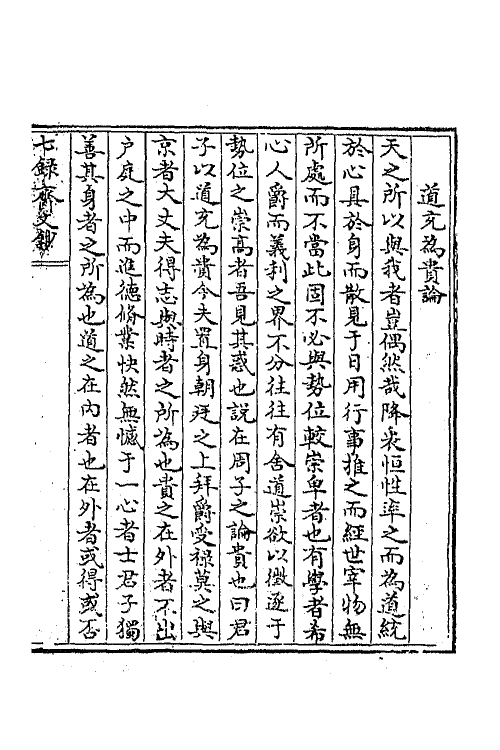 道充為貴論
天之所以與我者豈偶然哉降衷恒性率之而為道統
於心具於身而散見于日用行事推之而經世宰物無
所處而不當此固不必與勢位較崇卑者也有學者希
心人爵而義利之界不分往往有舍道崇欲以徵逐于
勢位之崇高者吾見其惑也説在周子之論貴也曰君
子以道充為貴今夫置身朝廷之上拜爵受祿莫之與
京者大丈夫得志與時者之所為也貴之在外者不出
户庭之中而進德脩業快然無憾于一心者士君子獨
善其身者之所為也道之在內者也在外者或得或否
七錄齋文鈔